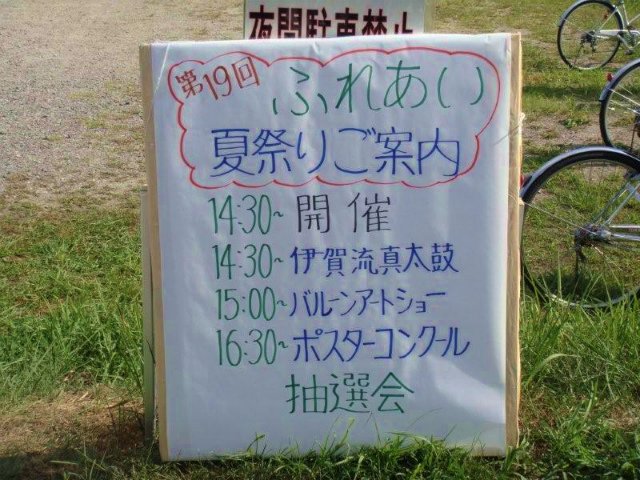 夜間駐車禁止
第19回
ふれあい
夏祭りご案内
14:30~ 開催
14:30~ 伊賀流真太鼓
15:00~ バルーンアートショー
16:30~ ポスターコンクール
抽選会